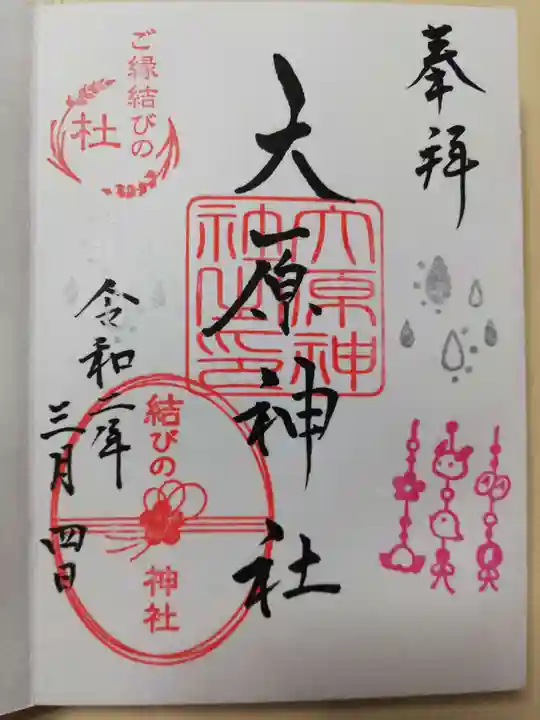 奉拝
大原神社
大原神
社之印
ご縁結びの
杜
令和二年
三月四日
結びの
神社